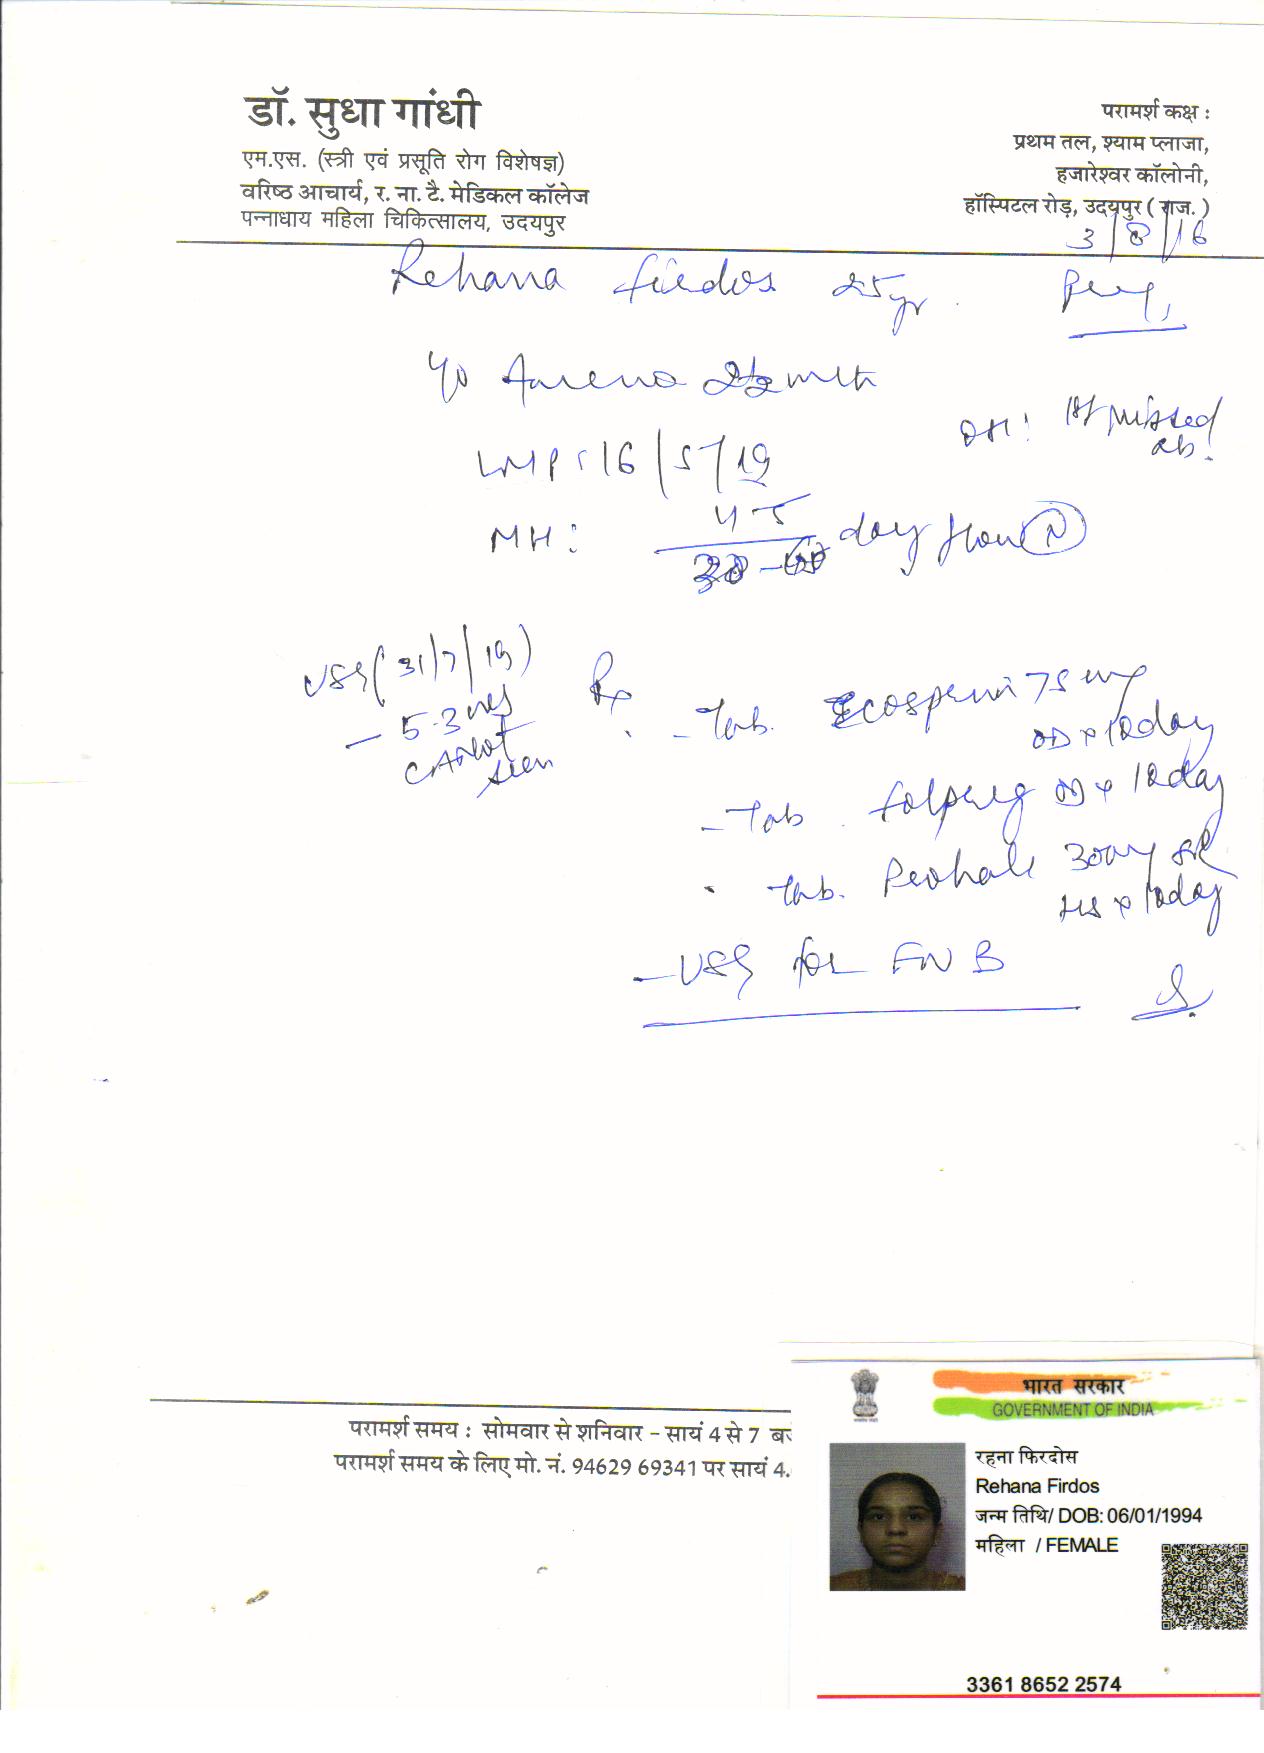 डॉ. सुधा गांधी
एम.एस. (स्त्री एवं प्रसूति रोग विशेषज्ञ)
वरिष्ठ आचार्य, र. ना. टै. मेडिकल कॉलेज
पन्नाधाय महिला चिकित्सालय, उदयपुर
परामर्श कक्ष :
प्रथम तल, श्याम प्लाजा,
हजारेश्वर कॉलोनी,
हॉस्पिटल रोड़, उदयपुर ( राज. )
3/8/16
Rehana Firdos 25yr.
LMP: 16/5/19
OH: 1st missed
ab.
MH: 45
day flow N
USG (31/7/19)
- 5.3
CA not
seen
Rx
- Tab. Ecosprin 75 mg
OD x 10day
- Tab. Folpreg OD x 10day
Tab. 300mg SR
HS x 10day
- USG for FWB
परामर्श समय : सोमवार से शनिवार - सायं 4 से 7
परामर्श समय के लिए मो. नं. 94629 69341 पर सायं 4.
भारत सरकार
GOVERNMENT OF INDIA
रहना फिरदोस
Rehana Firdos
जन्म तिथि/ DOB: 06/01/1994
महिला / FEMALE
3361 8652 2574